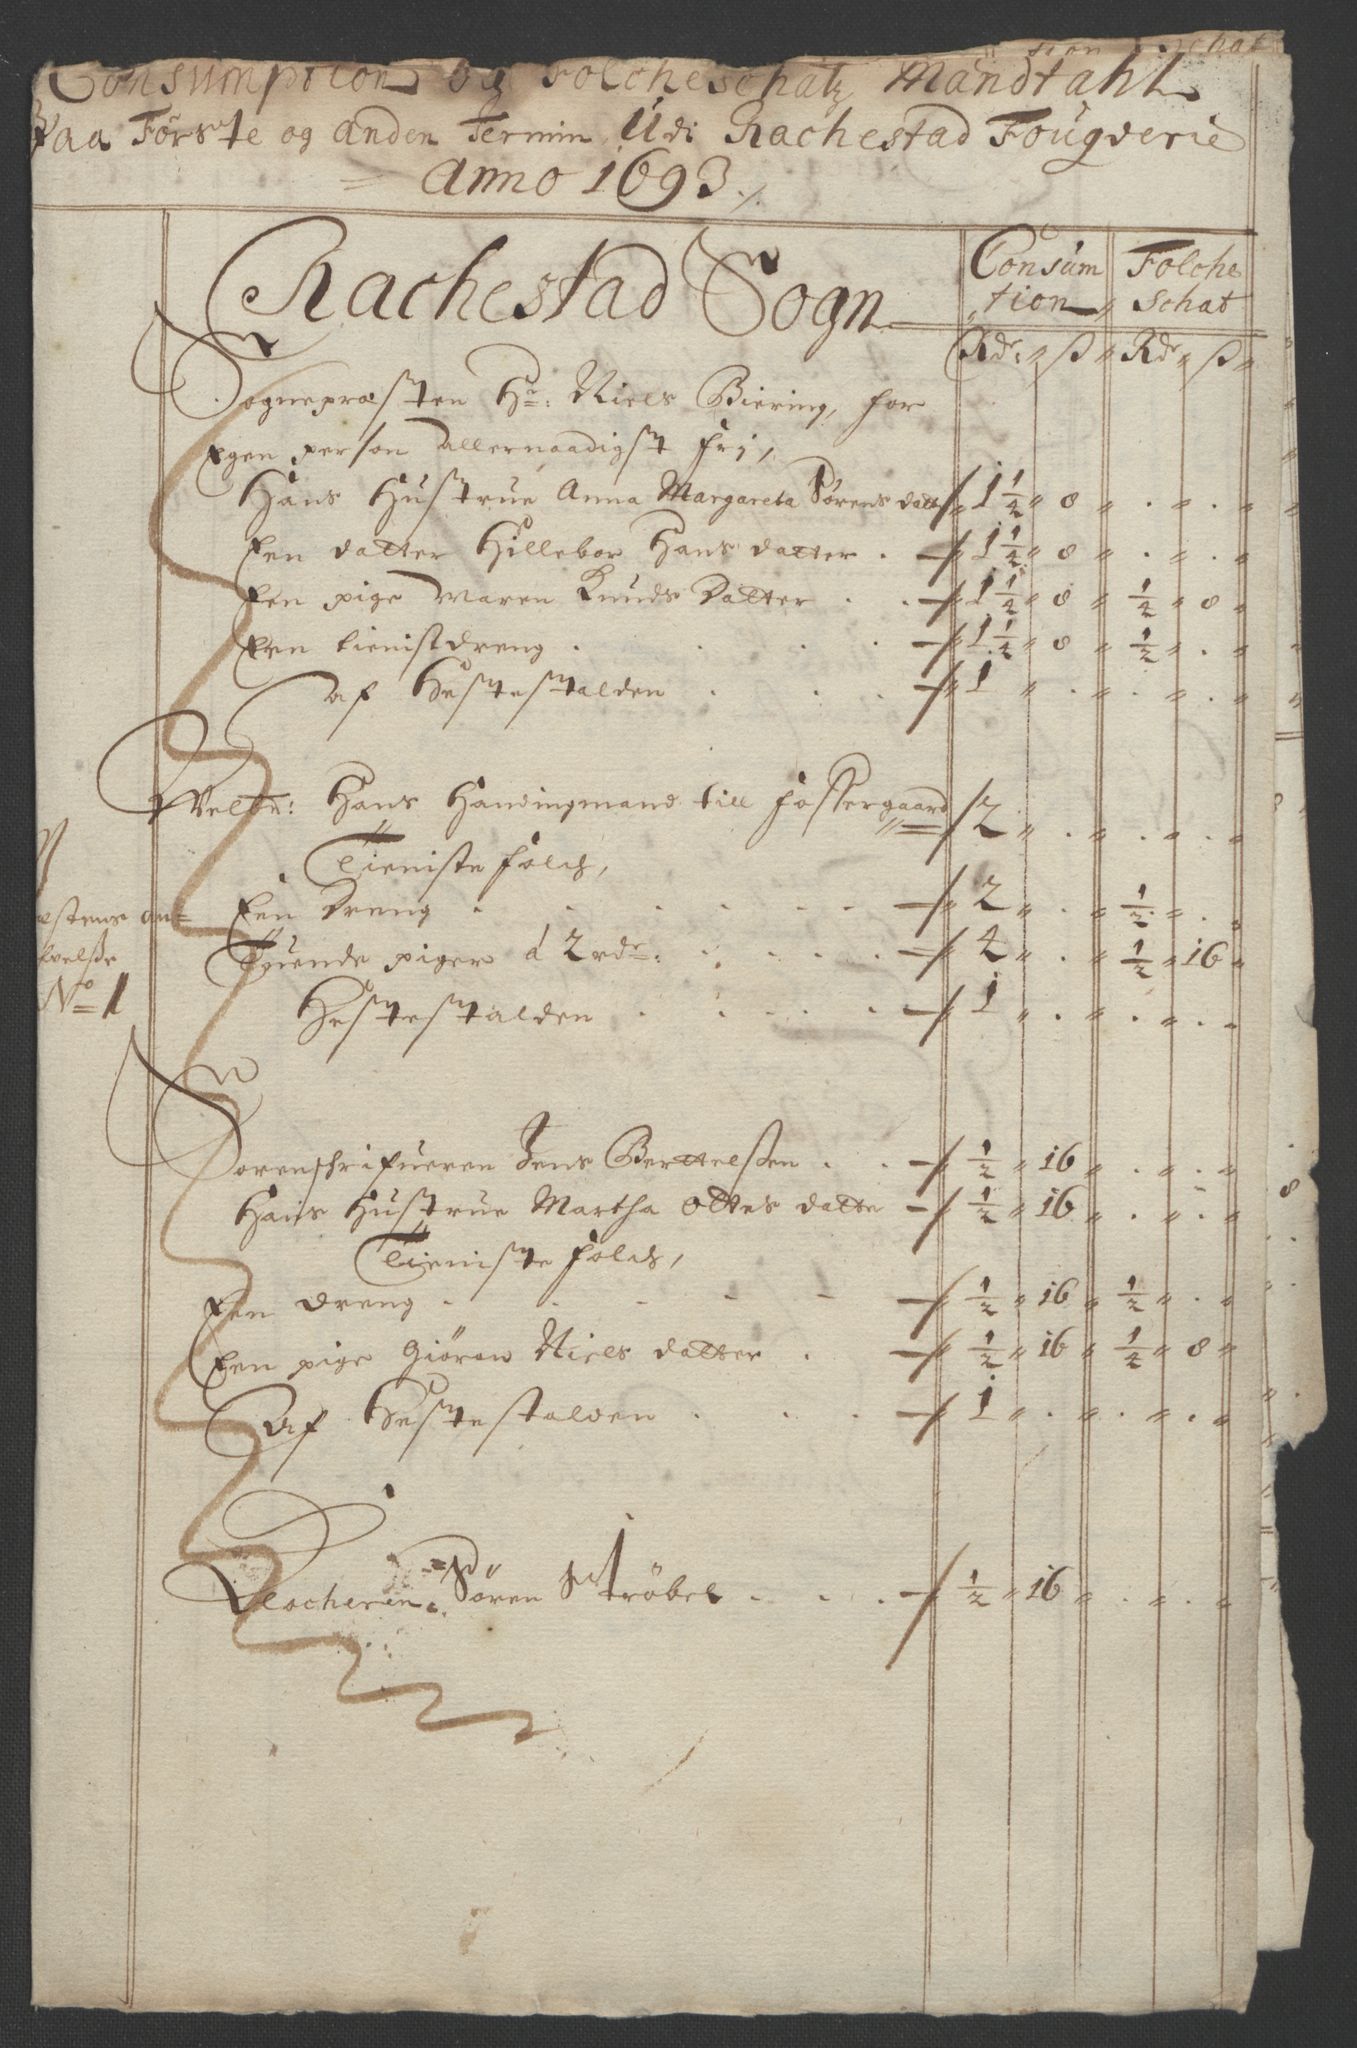 Consumption og Folcheschatz Mandtahl
Paa Første og anden Termin Udi Rachestad Fougderie
Anno 1693
Rachestad Sogn
Consum Folche
tion schat
Rdr ß Rdr ß
Sognepræsten Hr: Niels Biering, for
Egen person allernaadigst frj,
Hans Hustrue Anna Margareta Sørens datt 1 1/2 8 . .
Een datter Hillebor Hans datter . 1 1/2 8 . .
Een pige Maren Knuds Datter . . 1 1/2 8 1/2 8
Een tienistdreng . . . . 1 1/2 8 1/2 .
af Hestestalden . . . 1 . . .
Welbr: Hans Handingmand till Fossergaard 2 . . .
Tieniste folch,
Een Dreng . . . . 2 . 1/2 .
Tuende piger á 2 rdr: . . . 4 . 1/2 16
Hestestalden . . . . 1 . . .
No 1
Sorenschrifueren Jens Bertelßen . . 1/2 16 . .
Hans Hustrue Martha Ottes datte 1/2 16 . .
Tieniste folch,
Een dreng . . . . 1/2 16 1/2 .
Een pige Giøron Niels datter . 1/2 16 1/2 8
Af Hestestalden . . . 1 . . .
Clocheren: Søren Strøbel . . . 1/2 16 . .